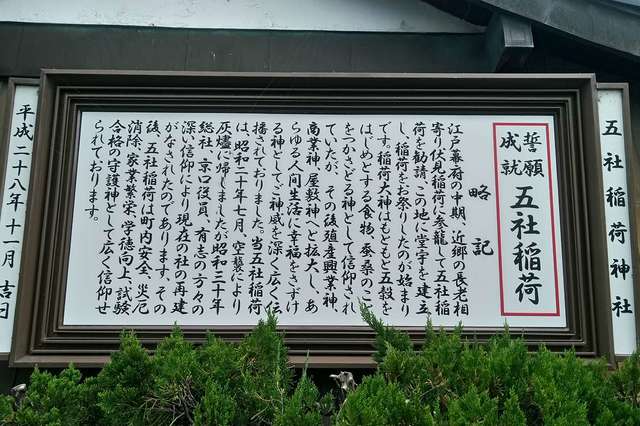 五社稲荷神社
誓願
成就
五社稲荷
略記
江戸幕府の中期、近郷の長老相
寄り伏見稲荷に参籠して五社稲
荷を勧請、この地に堂宇を建立
し、稲荷をお祭りしたのが始まり
です。稲荷大神はもともと五穀を
はじめとする食物、蚕桑のこと
をつかさどる神として信仰され
ていたが、その後殖産興業神、
商業神、屋敷神へと拡大し、あ
らゆる人間生活に幸福をさずけ
る神としてご神威を深く広く伝
播されておりました。当五社稲荷
は、昭和二十年七月、空襲により
灰燼に帰しましたが昭和三十年
総社、京口役員、有志の方々の
深い信仰により現在の社の再建
がなされたのであります。その
後、五社稲荷は町内安全、災厄
消除、家業繁栄、学徳向上、試験
合格の守護神として広く信仰せ
られております。
平成二十八年十一月 吉日